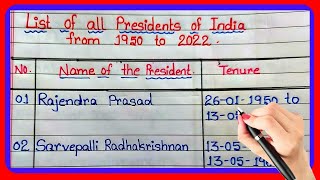 List of all Presidents of India
from 1950 to 2022.
No. Name of the President. Tenure
01 Rajendra Prasad 26-01-1950 to
13-05
02 Sarvepalli Radhakrishnan 13-05-
13-05-19